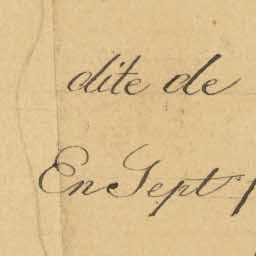 dite de
En Sept